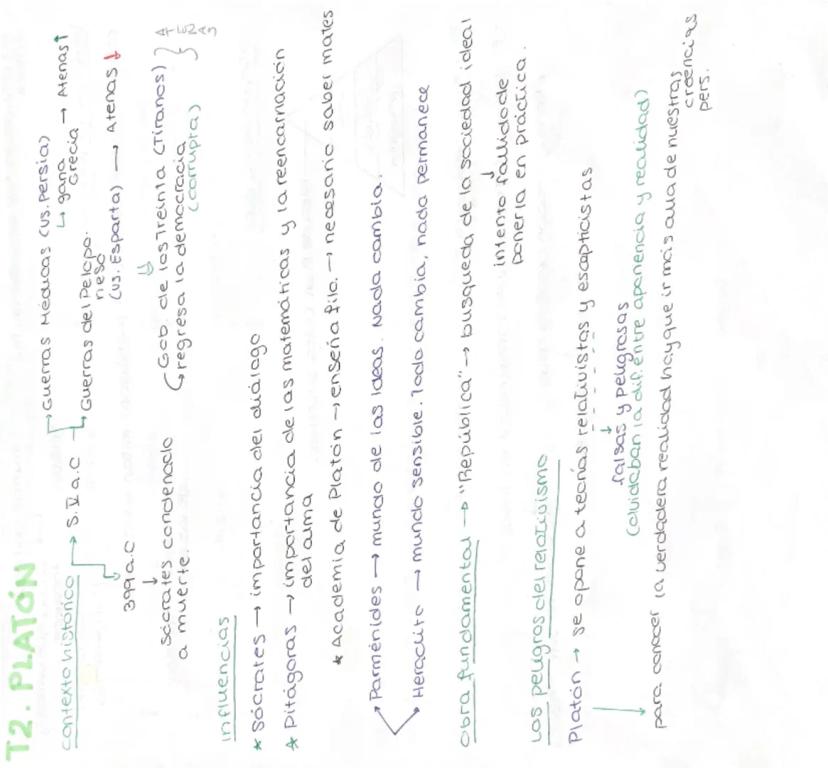 T2. PLATÓN
contexto histórico → S. V a.C → Guerras Médicas (vs. Persia)
↳ gana Grecia → Atenas ↑
→ Guerras del Pelopo-
neso
(vs. Esparta) → Atenas ↓
399 a.C
↓
Sócrates condenado
a muerte.
Gob. de los Treinta (Tiranos)
↳ regresa la democracia
(corrupta)
influencias
* Sócrates → importancia del diálogo
* Pitágoras → importancia de las matemáticas y la reencarnación
del alma
* Academia de Platón → enseña filo. → necesario saber mates
Parménides → mundo de las ideas. Nada cambia.
Heraclito → mundo sensible. Todo cambia, nada permanece
Obra fundamental → "República" → busqueda de la sociedad ideal
↓
intento fallido de
ponerla en práctica.
Los peligros del relativismo
Platón → se opone a teorías relativistas y escépticistas
↓
falsas y peligrosas
(olvidaban la dif. entre apariencia y realidad)
para conocer la verdadera realidad hay que ir más allá de nuestras
creencias
pers.